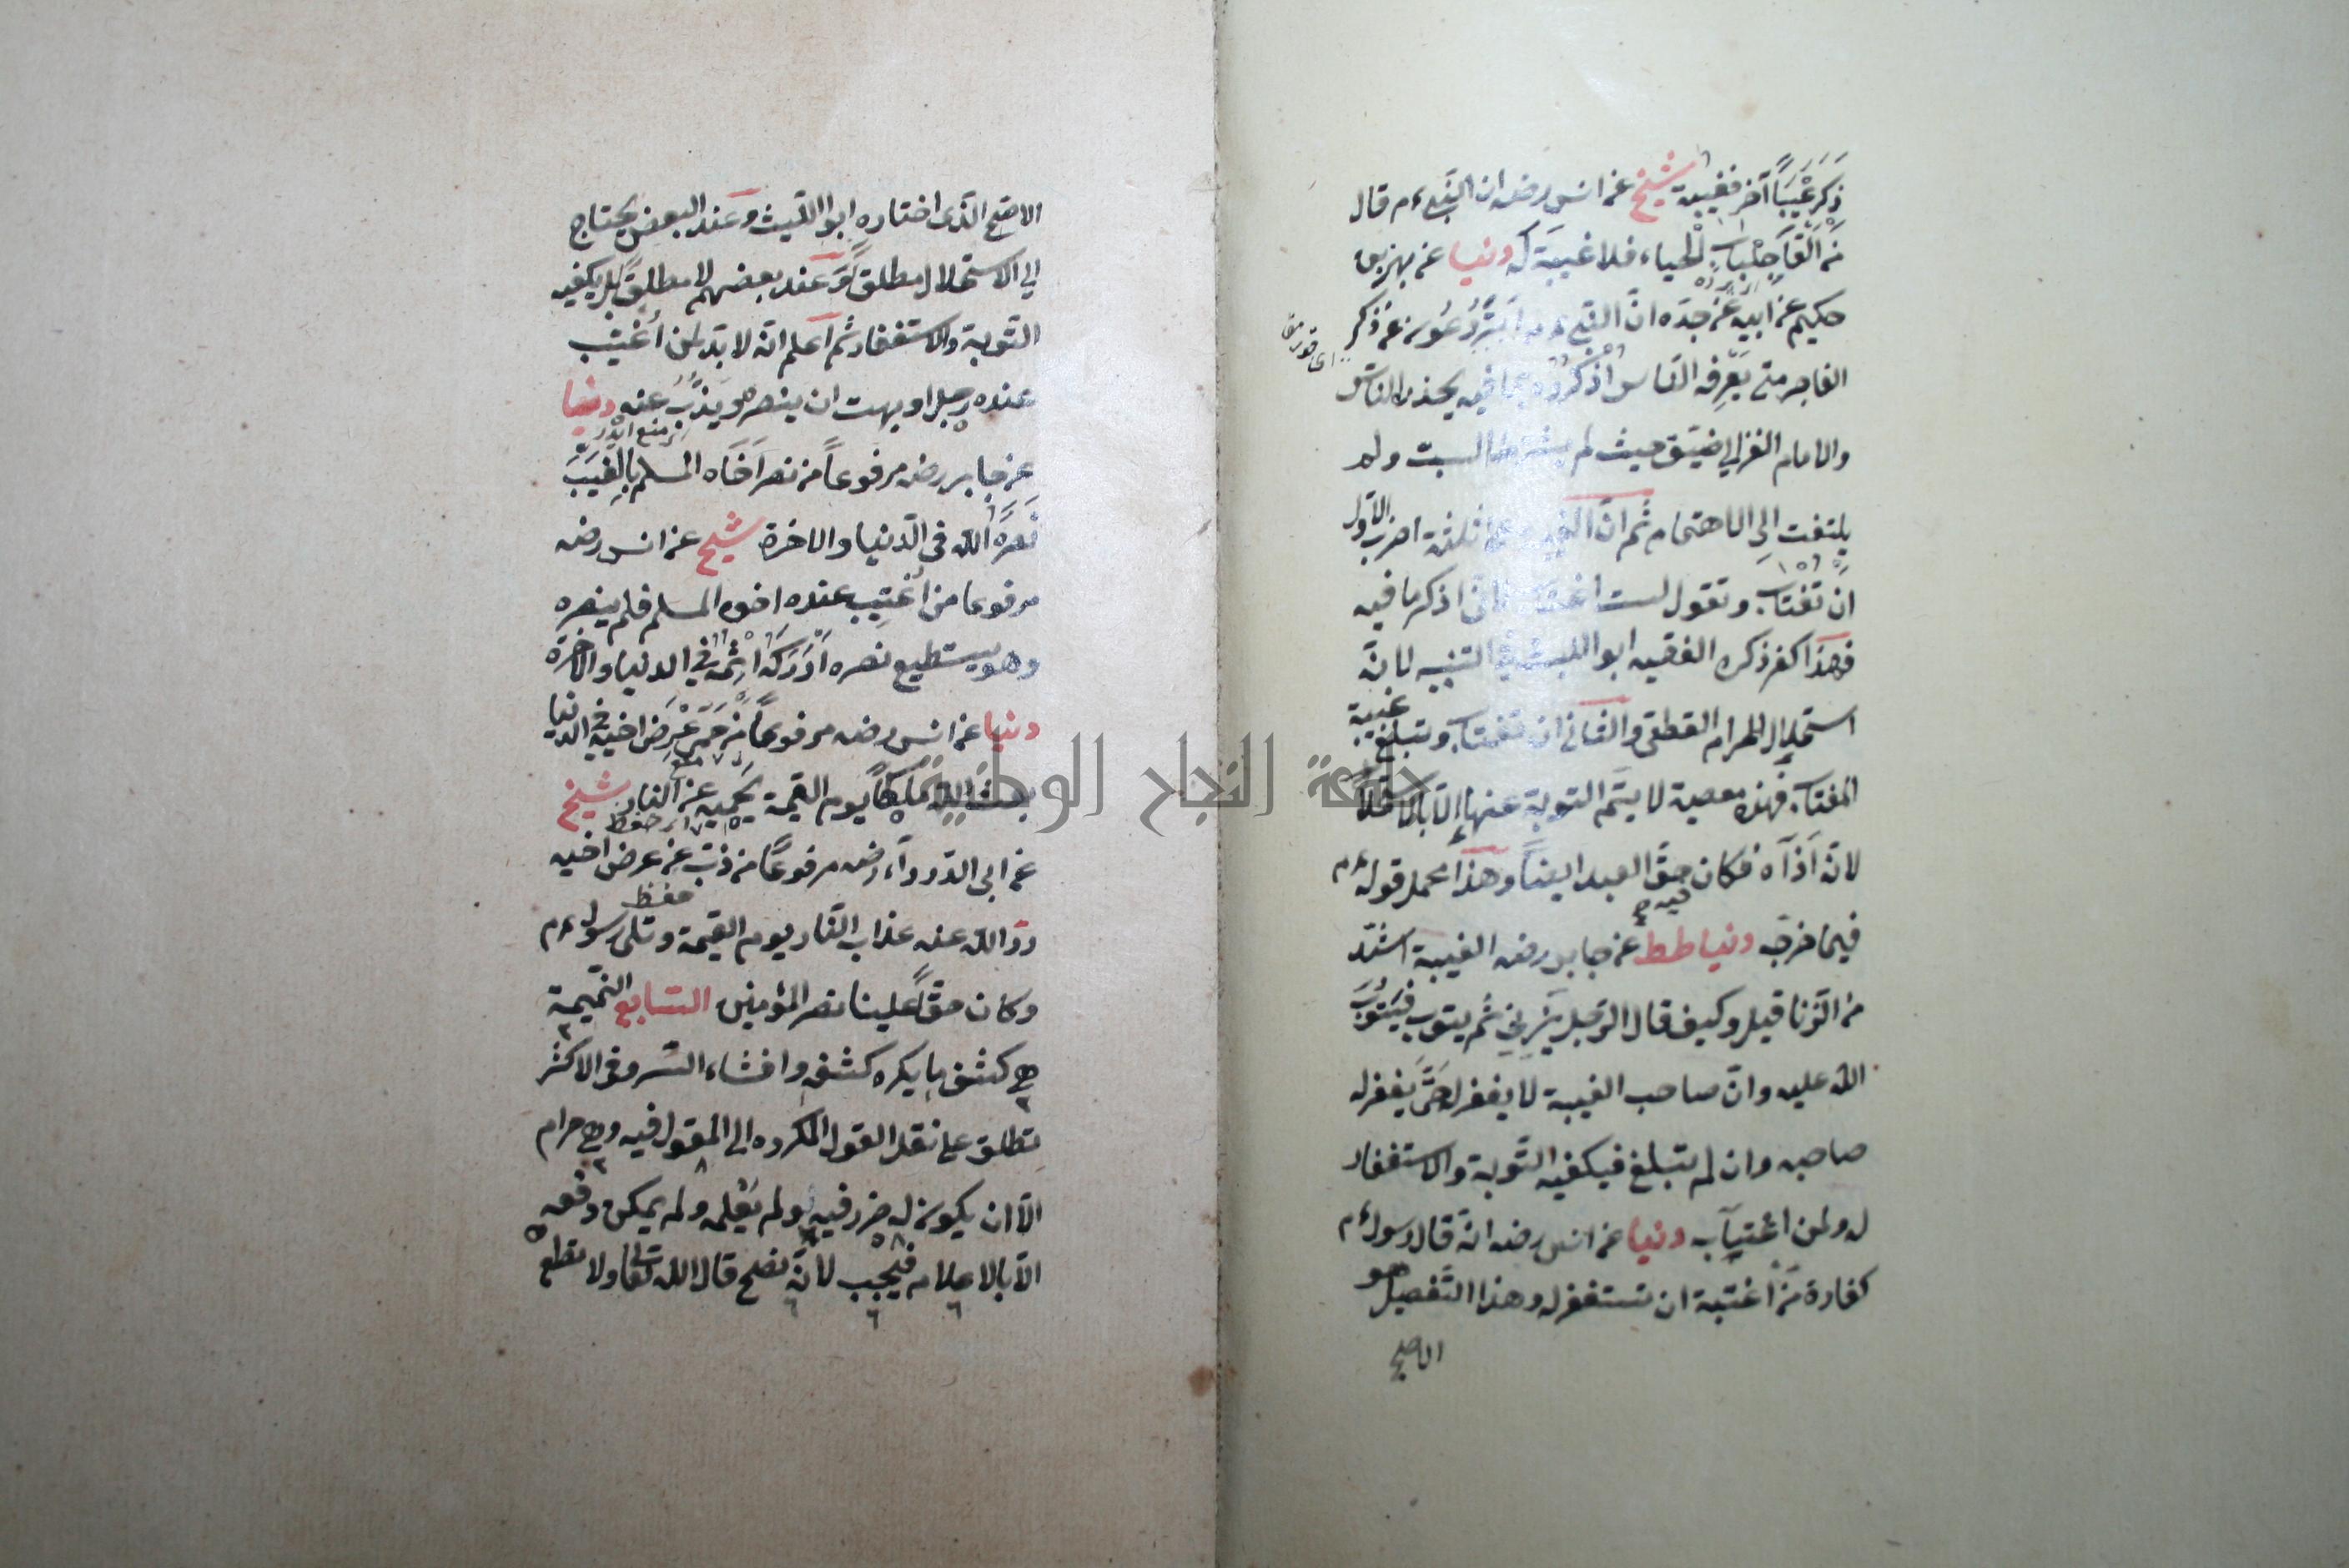 ذِكرَ عَيْباً آخر فغيبة شيخ عن انس رضه ان النبي ءم قال
مَن اَلْقَى جِلْبابَ الحياء فلا غيبةَ له دنيا عن بهز بن
حكيم عن ابيه عن جدّه انّ النبي ءم أترعون عن ذكر
اى تتورعون
الفاجر متى يَعْرِفه النّاس اُذْكُرُوه بما فيه يحذره الناس
والامام الغزالي ضيّق حيث لم يشترط السبت ولم
يلتفت الى الاهتمام ثم انّ الغيبة على ثلثة اضرب الاوّل
ان تغتاب وتقول لست اغتاب لانى اذكر ما فيه
فهذا كفر ذكره الفقيه ابو الليث في التنبيه لانّه
استحلال للحرام القطعى والثانى ان تغتاب وتبلغ غيبة
المغتاب فهذه معصية لا يتمّ التوبة عنها الّا بالاستحلال
لانّه اَذَاه فكان فيه حقّ العبد ايضاً وهذا محمل قوله ءم
فيما خرجه دنيا طط عن جابر رضه الغيبة اشدّ
من الزّنا قيل وكيف قال الرّجل يَزنِى ثم يتوب فَيَتُوبُ
الله عليه وانّ صاحب الغيبة لا يغفر له حتّى يَغفر له
صاحبه وان لم تبلغ فيكفيه التّوبة والاستغفار
له ولمن اغتيب به دنيا عن انس رضه انه قال رسول ءم
كفارة من اغتبته ان تستغفر له وهذا التّفصيل هو
الاصح
الاصحّ الّذى اختاره ابو اللّيث وعند البعض يحتاج
الى الاستحلال مطلقاً وعند بعضهم لا مطلقاً بل يكفيه
التّوبة والاستغفار ثم اعلم انّه لا بدّ لمن اُغتيب
عنده رجل او بهت ان ينصره ويَذُبَّ عنه دنيا
عن جابر رضه مرفوعاً من نصر اَخَاه المسلم بالغَيْبَ
نَصَرَهُ الله فى الدّنيا والاخرة شيخ عن انس رضه
مرفوعا من اُغتيب عنده اخوه المسلم فلم ينصره
وهو يستطيع نصره اَدْرَكَهُ اِثمُه في الدنيا والاخرة
دنيا عن انس رضه مرفوعاً مَنْ حَمَى عِرضَ اخيه في الدنيا
بعث الله مَلَكاً يوم القيمة يَحْمِيه عن النار شيخ
عن ابى الدّرداء رضه مرفوعاً من ذبّ عن عرض اخيه
حفظ
ردّ الله عنه عذاب النّار يوم القيمة وتلى رسول ءم
وكان حقّاً علينا نصر المؤمنين السّابع النّميمة
هي كشف ما يكره كشفه وافشاء السّر وفى الاكثر
تطلق على نقل القول المكروه الى المقول فيه وهي حرام
الّا ان يكون له ضرر فيه لو لم يَعْلمه ولم يمكن دفعه
الّا بالاعلام فيجب لانّه نصح قال الله تعالى ولا تطع
جامعة النجاح الوطنية